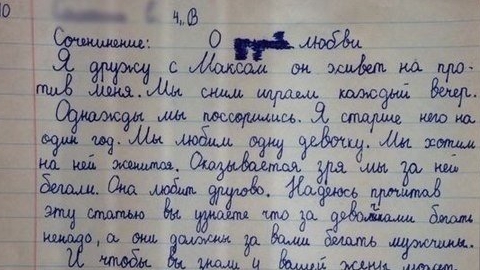 4 „В
Сочененние: О любви
Я дружу с Максам он живет на про-
тив меня. Мы сним играем каждый вечер.
Однажды мы поссорились. Я старше него на
один год. Мы любим одну девочку. Мы хотим
на ней женится. Оказывается зря мы за ней
бегали. Она любит другово. Надеюсь прочитав
эту статью вы узнаете что за девочками бегать
ненадо, а они должны за вами бегать мужчины.
И чтобы вы знали у вашей жены может